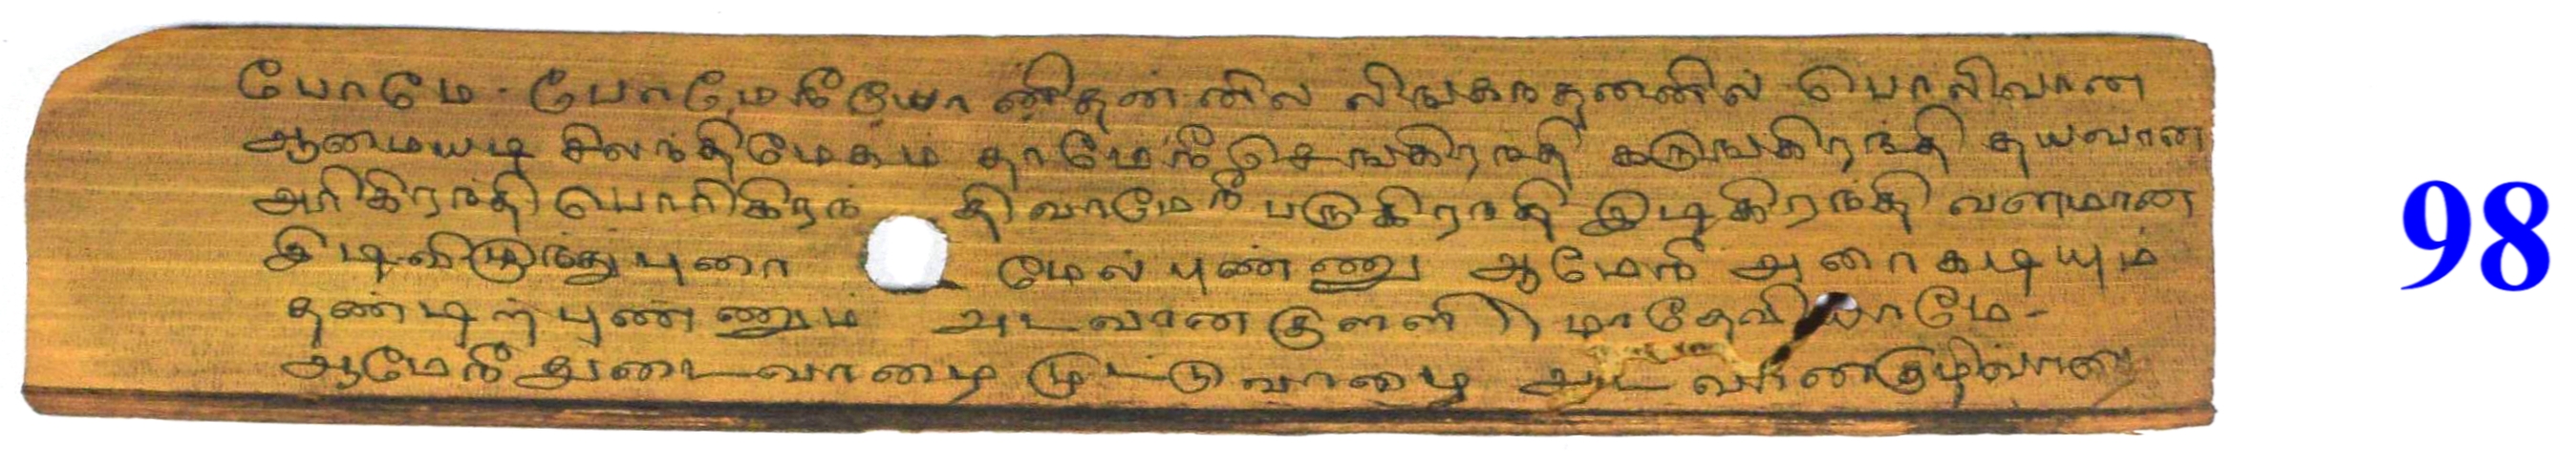 போமே. போமேநீயோனிதன்னில லிங்கநதனனில் பொலிவான
ஆமையடி சிலந்திமேகம தாமேநீ செஙகிரநதி கடுஙகிரந்தி தயவான
அரிகிரந்தி பொரிகிரந் திவாமேநீ படுகிரநதி இடிகிரந்தி வளமான
இடிவிழுந்து புரை மேல் புண்ணு ஆமேநீ அரைகடியும்
தண்டிற்புண்ணும் அடவான குளளிர் மாதேவியாமே-
ஆமேநீ துடைவாழை முட்டுவாழை அடவானகுழிவான
98